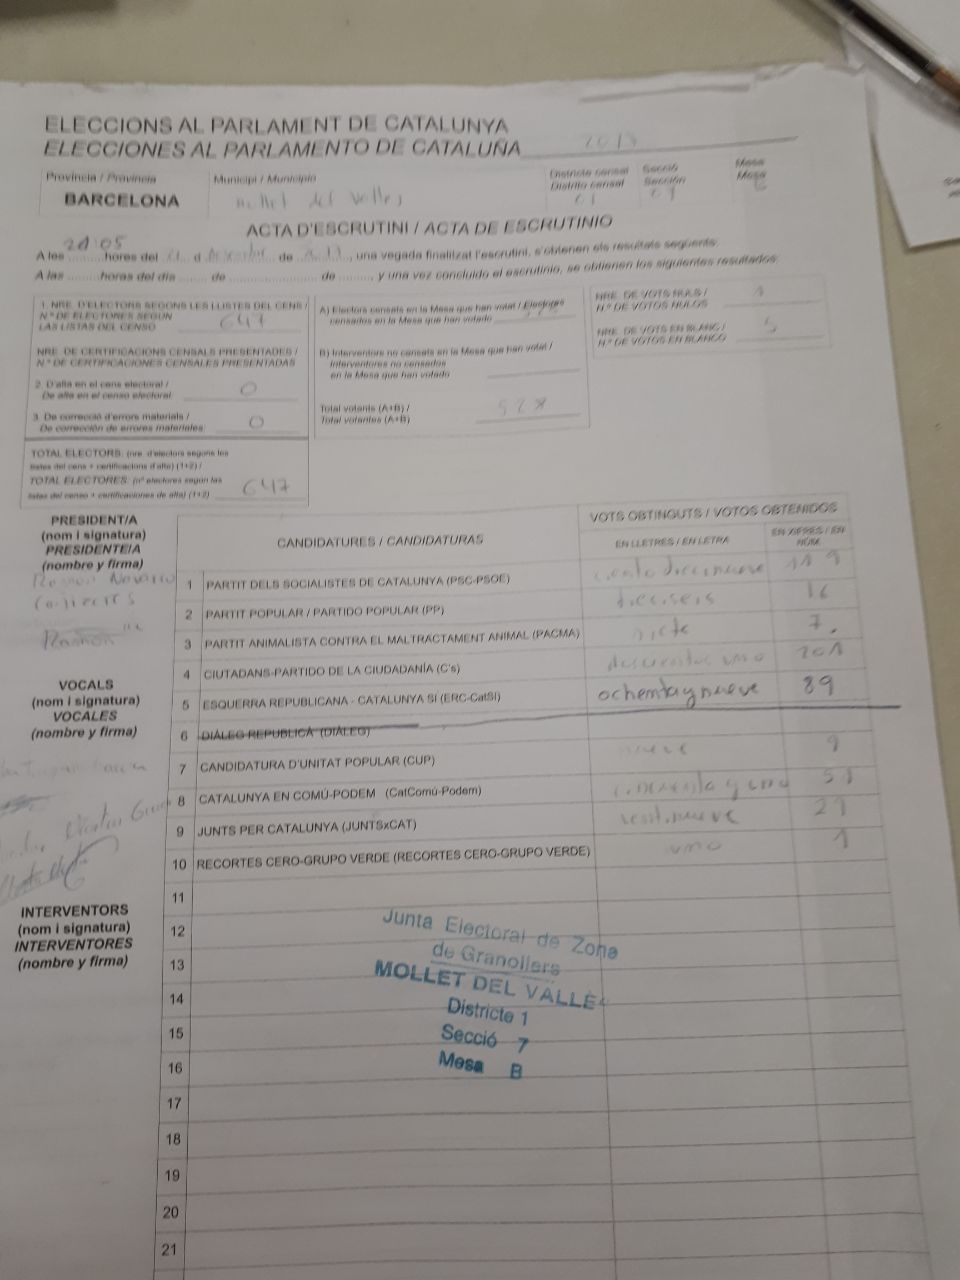 ELECCIONS AL PARLAMENT DE CATALUNYA
ELECCIONES AL PARLAMENTO DE CATALUÑA 2017
Província / Provincia
BARCELONA
Municipi / Municipio
Mollet del Vallès
Districte censal
Distrito censal
01
Secció
Sección
Mesa
Mesa
ACTA D'ESCRUTINI / ACTA DE ESCRUTINIO
A les 21 05 hores del 21 d de 2017, una vegada finalitzat l'escrutini, s'obtenen els resultats següents:
A las ........ hores del día ...... de ................ de .........., y una vez concluido el escrutinio, se obtienen los siguientes resultados:
1. NRE. D'ELECTORS SEGONS LES LLISTES DEL CENS /
N.º DE ELECTORES SEGÚN
LAS LISTAS DEL CENSO 647
NRE. DE CERTIFICACIONS CENSALS PRESENTADES /
N.º DE CERTIFICACIONES CENSALES PRESENTADAS
2. D'alta en el cens electoral /
De alta en el censo electoral: 0
3. De correcció d'errors materials /
De corrección de errores materiales: 0
TOTAL ELECTORS: (nre. d'electors segons les
llistes del cens + certificacions d'alta) (1+2) /
TOTAL ELECTORES: (nº electores según las
listas del censo + certificaciones de alta) (1+2) 647
A) Electors censats en la Mesa que han votat / Electores
censados en la Mesa que han votado
B) Interventors no censats en la Mesa que han votat /
Interventores no censados
en la Mesa que han votado
Total votants (A+B) /
Total votantes (A+B) 528
NRE. DE VOTS NULS /
N.º DE VOTOS NULOS 1
NRE. DE VOTS EN BLANC /
N.º DE VOTOS EN BLANCO 5
PRESIDENT/A
(nom i signatura)
PRESIDENTE/A
(nombre y firma)
Ramon Navarro
Ramon
VOCALS
(nom i signatura)
VOCALES
(nombre y firma)
INTERVENTORS
(nom i signatura)
INTERVENTORES
(nombre y firma)
CANDIDATURES / CANDIDATURAS
VOTS OBTINGUTS / VOTOS OBTENIDOS
EN LLETRES / EN LETRA
EN XIFRES / EN NÚM.
1 PARTIT DELS SOCIALISTES DE CATALUNYA (PSC-PSOE) ciento diecinueve 119
2 PARTIT POPULAR / PARTIDO POPULAR (PP) dieciseis 16
3 PARTIT ANIMALISTA CONTRA EL MALTRACTAMENT ANIMAL (PACMA) siete 7
4 CIUTADANS-PARTIDO DE LA CIUDADANÍA (C's) doscientos uno 201
5 ESQUERRA REPUBLICANA - CATALUNYA SÍ (ERC-CatSí) ochenta y nueve 89
6 DIÀLEG REPUBLICÀ (DIÀLEG)
7 CANDIDATURA D'UNITAT POPULAR (CUP) nueve 9
8 CATALUNYA EN COMÚ-PODEM (CatComú-Podem) cincuenta y uno 51
9 JUNTS PER CATALUNYA (JUNTSxCAT) veintinueve 29
10 RECORTES CERO-GRUPO VERDE (RECORTES CERO-GRUPO VERDE) uno 1
11
12
13
14
15
16
17
18
19
20
21
Junta Electoral de Zona
de Granollers
MOLLET DEL VALLÈS
Districte 1
Secció 7
Mesa B